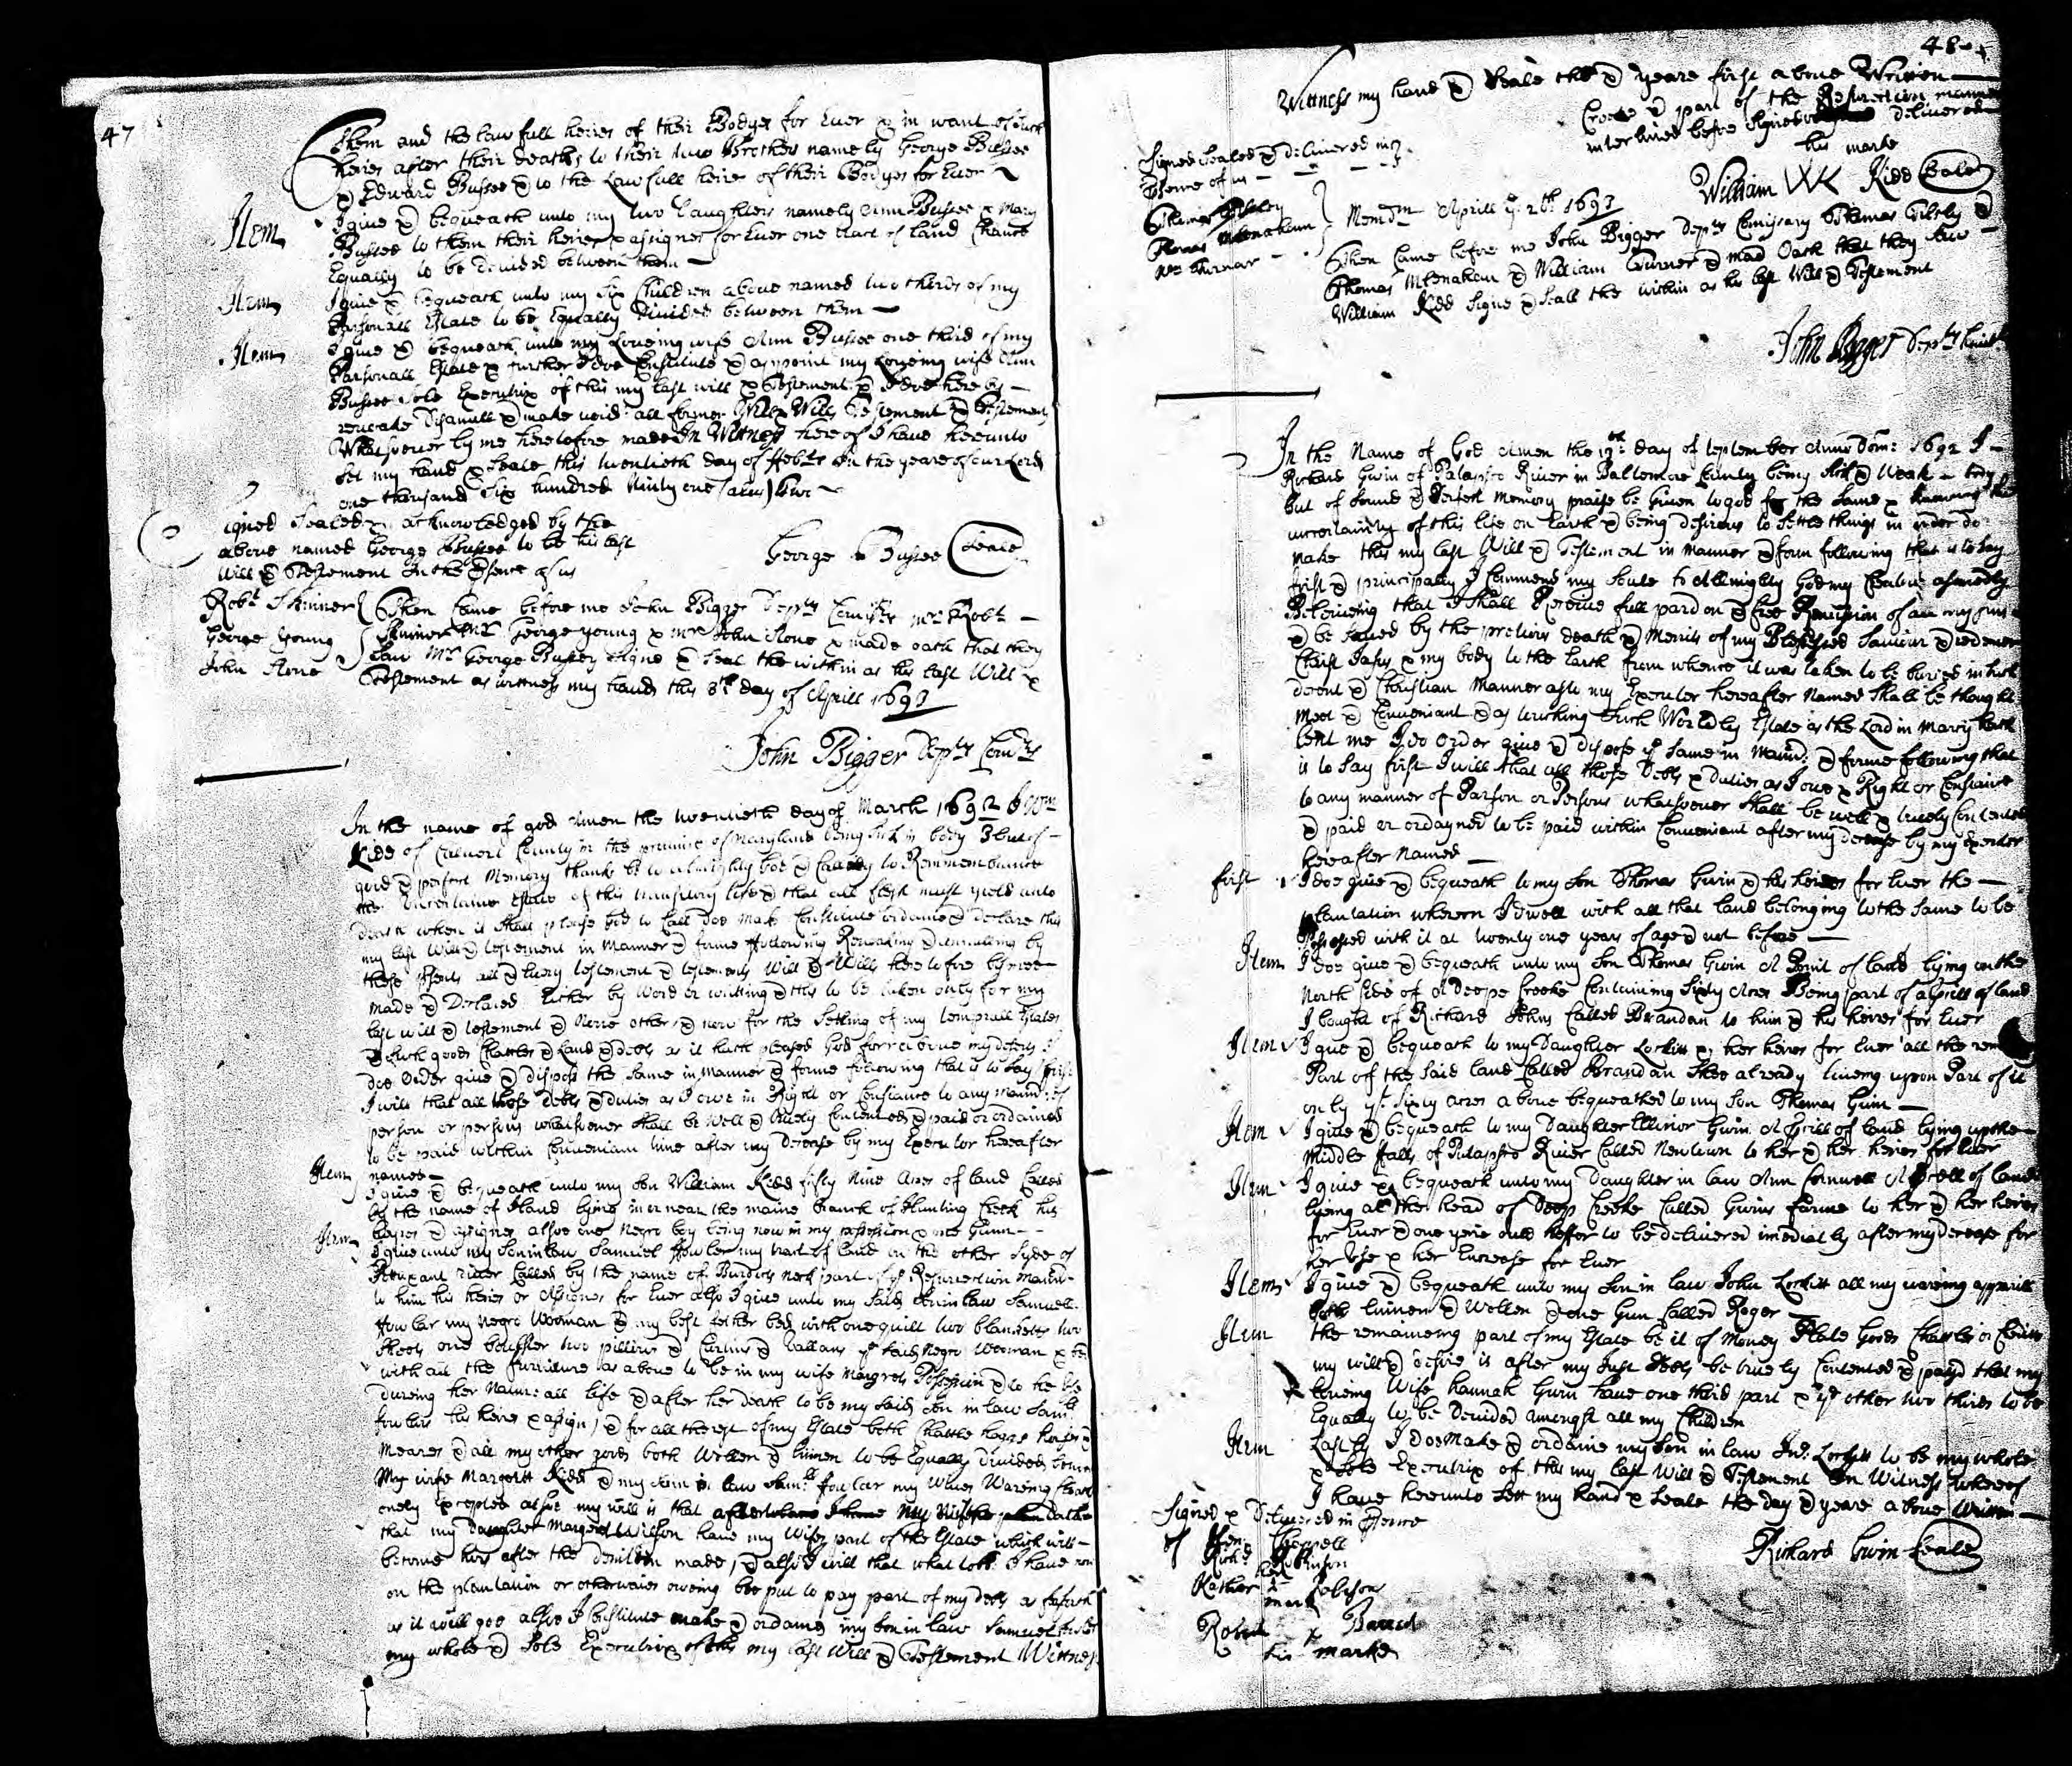 47
them and the lawfull heires of their Bodyes for Ever & in want of Such
heires after their deaths to their two Brothers namely George Bussee
& Edward Bussee & to the Lawfull heirs of their Bodyes for Ever
Item I give & bequeath unto my two Daughters namely Ann Bussee & Mary
Bussee to them their heires & assignes for Ever one tract of land Chance
Equally to be devided between them
Item I give & bequeath unto my Six Children above named two therds of my
Parsonall Estate to be Equally Divided between them
Item I give & bequeath unto my Loveing wife Ann Bussee one third of my
Parsonall Estate & further I doe Constitute & appoint my Loveing wife Ann
Bussee Sole Executrix of this my last will & Testement & I doe here by
revoake Disanull & make void all former Will & Wills Testement & Testements
Whatsoever by me heretofore made In Wittness here of I have hereunto
set my hand & Seale this twentieth day of Febr in the yeare of our Lord
one thousand Six hundred Ninty one (alias) two
Signed Sealed & acknowledged by the
above named George Bussee to be his last
Will & Testement In the Psence of us
George Bussee Seale
Robt Skinner
George Young
John Stone
Then Came before me John Bigger Depty Comisr Mr Robt
Skinner Mr George Young & Mr John Stone & made oath that they
saw Mr George Bussey Signe & Seal the within as his last Will &
Testement as wittness my hand this 8th day of Aprill 1693
John Bigger Depty Comry
In the name of god Amen the twentieth day of March 1692 I Wm
Kidd of Calvert County in the province of Maryland being Sick in body but of
good & perfect Memory thanks be to almighty God & Calling to Rememberance
the Uncertaine Estate of this transitory life & that all flesh must yield unto
death when it Shall please God to Call Doe Make Constitute ordaine & Declare this
my last Will & testement in Manner & forme following Revoaking & annulling by
these psents all & Every testement & testements Will & Wills here to fore by mee
made & Declared Either by Word or writting & this to be taken only for my
last will & testement & None other & now for the Setling of my temprall Estate
& Such goods Chattles & Land & Debts as it hath pleased God
doe Order give & dispose the Same in Manner & forme following that is to Say first
I will that all those Debts & duties as I owe in Right or Consiance to any Mannr of
person or persons whatsoever Shall be Well & truely Contented & paid or ordained
to be paid within Conveniant time after my Decease by my Executor hereafter
named
Item I give & bequeath unto my Son William Kidd fifty Nine Acres of land Called
by the name of Island lying in or near the maine branch of Hunting Creek his
heires & assignes allsoe one Negro boy being now in my possession & one Gunn
Item I give unto my Soninlaw Samuel Fowler my tract of land on the other Syde of
Potuxant river Called by the name of Burdits neck part of ye Resurrection Mannr
to him his heires or Assignes for Ever also I give unto my Said Soninlaw Samuell
Fowlar my Negro Wooman & my best fether bed with one quilt two blanketts two
Sheets one boulster two pillows & Curtins & Vallans ye Said Negro Wooman &
with all the furniture as above to be in my wife Margrets Possession & to her Use
dureing her Naturall life & after her death to be my Said Son in law Samll
Fowlers his heires & assigns & for all the rest of my Estate both Chattle hoggs horses &
Meares & all my other goods both Wollen & linnen to be Equally Divided between
My wife Margrett Kidd & my Soninlaw Samll Fowlar my Wives Waring
onely Excepted allsoe my will is that
that my Daughter Margrett Wilson have my Wifes part of the Estate which will
become hers after the devision made, & allsoe I will that what tobb I have now
on the plantation or otherwaies oweing bee put to pay part of my Debts as far forth
as it will goe allsoe I Constitute make & ordaines my Son in law Samuel Fowler
my whole & Sole Executrix of this my last Will & Testement Wittness
48
Wittness my hand & Seale the & yeare first above Written
Creeke & part of the Resurection mannr
interlined before Signed delivered
his marke
Signed Sealed & delivered in
Psence of us
William W Kidd Seale
Thomas
Thomas
Wm Turnar
Memdm Aprill ye 2th 1693
Then Came before me John Bigger Depty Comissary Thomas &
Thomas & William Turner & mad Oath that they saw
William Kidd Signe & Seall the within as his last Will & Testement
John Bigger Depty
In the Name of God Amen the 19th day of September Anno Dom: 1692 I
Richard Gwin of Patapsco River in Baltemore County being Sick & Weak in body
but of Sound & Perfect Memory praise be Given to god for the Same & knowing the
uncertainty of this life on Earth & being desirous to Settle things in order do
Make this my last Will & Testement in Manner & form following that is to Say
first & principally I Commend my Soule to Allmighty God my Creator assuredly
Believeing that I Shall Receive full pardon & free Remission of all my Sins
& be Saved by the pretious death & Merits of my Blessed Saviour & redeemer
Christ Jesus & my body to the Earth from whence it was taken to be buried in Such
decent & Christian Manner as to my Executor hereafter Named Shall be thought
Meet & Conveniant & as tuching Such Worldly Estate as the Lord in Marcy hath
lent me I do Order give & dispose ye Same in Mannr & forme following that
is to Say first I will that all those Debts & Duties as I owe in Right or Consiance
to any manner of Parson or Persons whatsoever Shall be well & truely Contented
& paid or ordayned to be paid within Conveniant after my decease by my Executor
hereafter Named
first I doe give & bequeath to my Son Thomas Gwin & his heires for Ever the
plantation wherein I dwell with all that land belonging to the Same to be
Possessed with it at twenty one years of age & not before
Item I doe give & bequeath unto my Son Thomas Gwin A Parcill of land lying on the
North Side of A Deepe Creeke Containing Sixty Acres Being part of a Prcill of land
I bought of Richard Johns Called Brandan to him & his heires for Ever
Item I give & bequeath to my Daughter Lockitt & her heires for Ever all the rem
Part of the Said land Called Brandan Shee already liveing upon Part of it
only ye Sixty acres above bequeathed to my Son Thomas Gwin
Item I give & bequeath to my Daughter Ellinor Gwin A Prcill of land lying up the
Middle falls of Patapsco River Called Newtown to her & her heires for Ever
Item I give & bequeath unto my Daughter in law Ann Cornwell A Prcell of land
lyeing at the head of Deep Creeke Called Gwins Farme to her & her heires
for Ever & one year ould heffer to be delivered imediatly after my decease for
her Use & her Increase for Ever
Item I give & bequeath unto my Son in law John Lockitt all my wareing apparill
both linnen & Wollen & one Gun Called Roger
Item the remaineing part of my Estate be it of Money Plate Goods Chattles or
my will & desire is after my Just Debts be truely Contented & payd that my
loveing Wife Hannah Gwin have one third part & ye other two thirds to be
Equally to be Devided amongst all my Children
Item Lastly I doe Make & ordaine my Son in law Jno Lockitt to be my whole
& Sole Executrix of this my last Will & Testement In Witness whereof
I have hereunto Sett my hand & Seale the day & yeare above Written
Signed & Delivered in Psence
of
Richd Robinson
her
mark
Richard Gwin Seale
Robert x
his marke